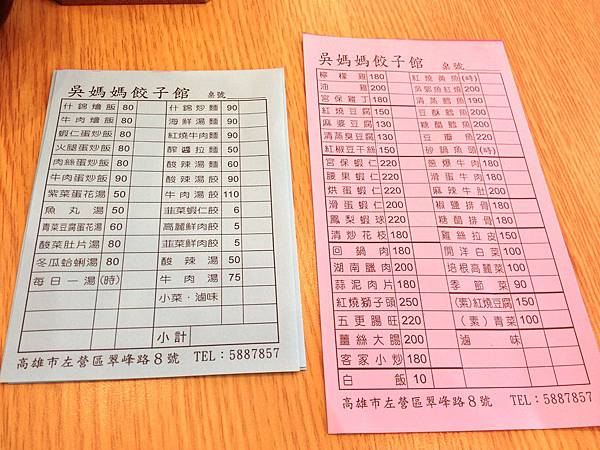 吳媽媽餃子館 桌號
什錦燴飯 80 什錦炒麵 90
牛肉燴飯 80 海鮮湯麵 90
蝦仁蛋炒飯 80 紅燒牛肉麵 90
火腿蛋炒飯 80 醡醬拉麵 50
肉絲蛋炒飯 80 酸辣湯麵 60
牛肉蛋炒飯 90 酸辣湯餃 90
紫菜蛋花湯 50 牛肉湯餃 110
魚丸湯 50 韭菜蝦仁餃 6
青菜豆腐蛋花湯 60 高麗鮮肉餃 5
酸菜肚片湯 80 韭菜鮮肉餃 5
冬瓜蛤蜊湯 80 酸辣湯 50
每日一湯 (時) 牛肉湯 75
小菜．滷味
小計
高雄市左營區翠峰路8號 TEL：5887857
吳媽媽餃子館 桌號
檸檬雞 180 紅燒黃魚 (時)
油雞 200 吳郭魚紅燒 200
宮保雞丁 180 清蒸鱈魚 190
紅燒豆腐 150 豆酥鱈魚 200
麻婆豆腐 130 糖醋鱈魚 200
清蒸臭豆腐 130 豆瓣魚 220
紅椒豆干絲 150 砂鍋魚頭 (時)
宮保蝦仁 220 蔥爆牛肉 180
腰果蝦仁 220 滑蛋牛肉 180
烘蛋蝦仁 220 麻辣牛肚 200
滑蛋蝦仁 200 椒鹽排骨 180
鳳梨蝦球 220 糖醋排骨 180
清炒花枝 180 雞絲拉皮 150
回鍋肉 180 開洋白菜 100
湖南臘肉 200 培根高麗菜 100
蒜泥肉片 180 季節菜 90
紅燒獅子頭 250 (素)紅燒豆腐 150
五更腸旺 220 (素)青菜 100
薑絲大腸 200 滷味
客家小炒 180
白飯 10
高雄市左營區翠峰路8號 TEL：5887857